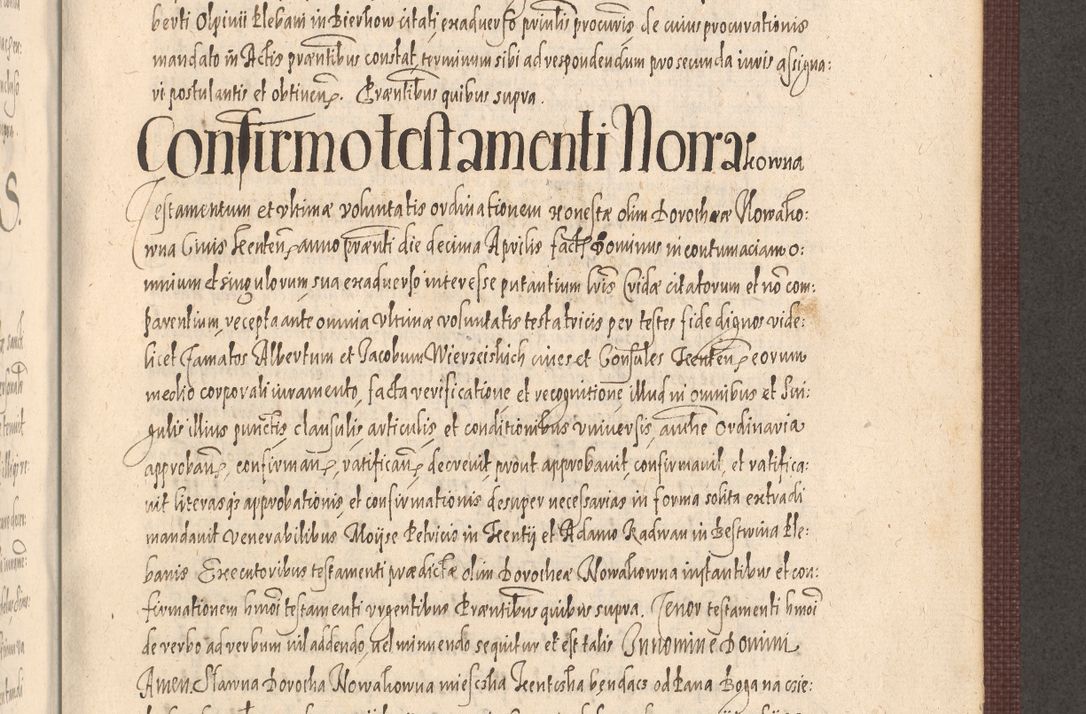 berti Olpinii Plebani in Bierkow citati exaduerso principalis procuris de cuius procurationis
mandato in Actis præntibus constat, terminum sibi ad respondendum pro secunda iuris assigna:
ri postulantis et obtinen. Præntibus quibus supra.
Confirmo testamenti Nowakowna
Testamentum et vltimæ voluntatis ordinationem honestæ olim Dorotheæ Nowako:
wna Ciuis Kenten, anno prænti die decima Aprilis fact Dominus in contumaciam o:
mnium et singulorum sua exaduerso interesse putantium lris Cridæ citatorum et nõ com:
parentium, recepta ante omnia vltimæ voluntatis testatricis per testes fide dignos vide:
licet famatos Albertum et Jacobum Wierzeiskich ciues et Consules Kenten, eorum
medio corporali iuramento, facta verificatione et recognitione illud in omnibus et sin:
gulis illius punctis clausulis articulis et conditionibus vniuersis, authe Ordinaria
approban, confirman, ratifican, decreuit prout approbauit, confirmauit, et ratifica:
uit literasqs approbationis, et confirmationis desuper necessarias in forma solita extradi
mandauit venerabilibus Moijse Petricio in Kentij et Adamo Radwan in Bestwina Ple:
banis Executoribus testamenti prædictæ olim Dorotheæ Nowakowna instantibus et con:
firmationem hmõi testamenti vrgentibus Præntibus quibus supra. Tenor testamenti hmõi
de verbo ad verbum nil addendo, uel minuendo sequitur et est talis In nomine Domini
Amen. Slawna Dorotha Nowakowna miesczka Kentczka bendacz od Pana Boga na czie: